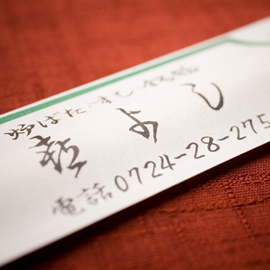 炉ばた・すし・銘酒
喜よし
電話0724-28-275